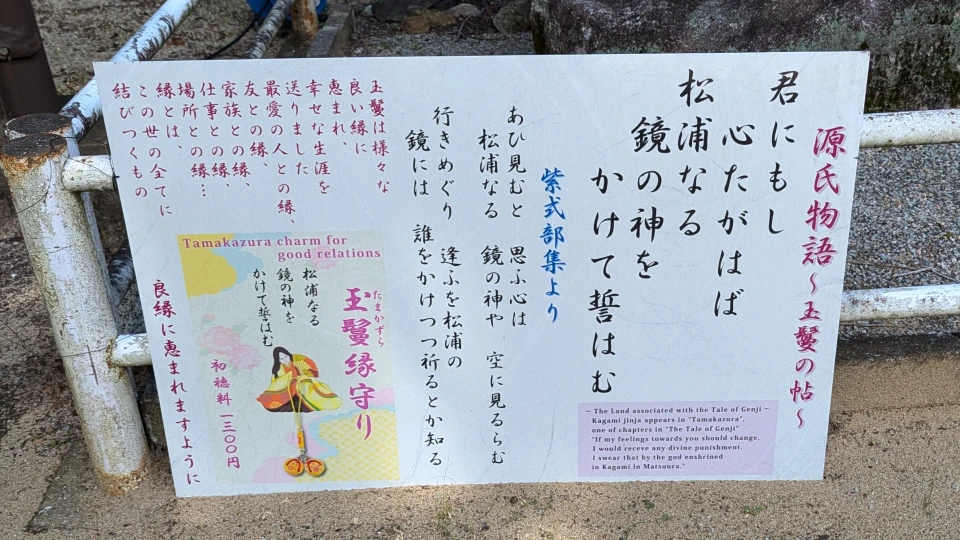 源氏物語～玉鬘の帖～
君にもし
心たがはば
松浦なる
鏡の神を
かけて誓はむ
～The Land associated with the Tale of Genji～
Kagami jinja appears in "Tamakazura",
one of chapters in "The Tale of Genji"
"If my feelings towards you should change,
I would receve any divine punishment.
I swear that by the god enshrined
in Kagami in Matsoura."
紫式部集より
あひ見むと 思ふ心は
松浦なる 鏡の神や 空に見るらむ
行きめぐり 逢ふを松浦の
鏡には 誰をかけつつ祈るとか知る
玉鬘は様々な
良い縁に
恵まれ、
幸せな生涯を
送りました
最愛の人との縁、
友との縁、
家族との縁、
仕事との縁、
場所との縁…
縁とは、
この世の全てに
結びつくもの
Tamakazura charm for
good relations
たまかずら
玉鬘縁守り
松浦なる
鏡の神を
かけて誓はむ
初穂料 一三〇〇円
良縁に恵まれますように